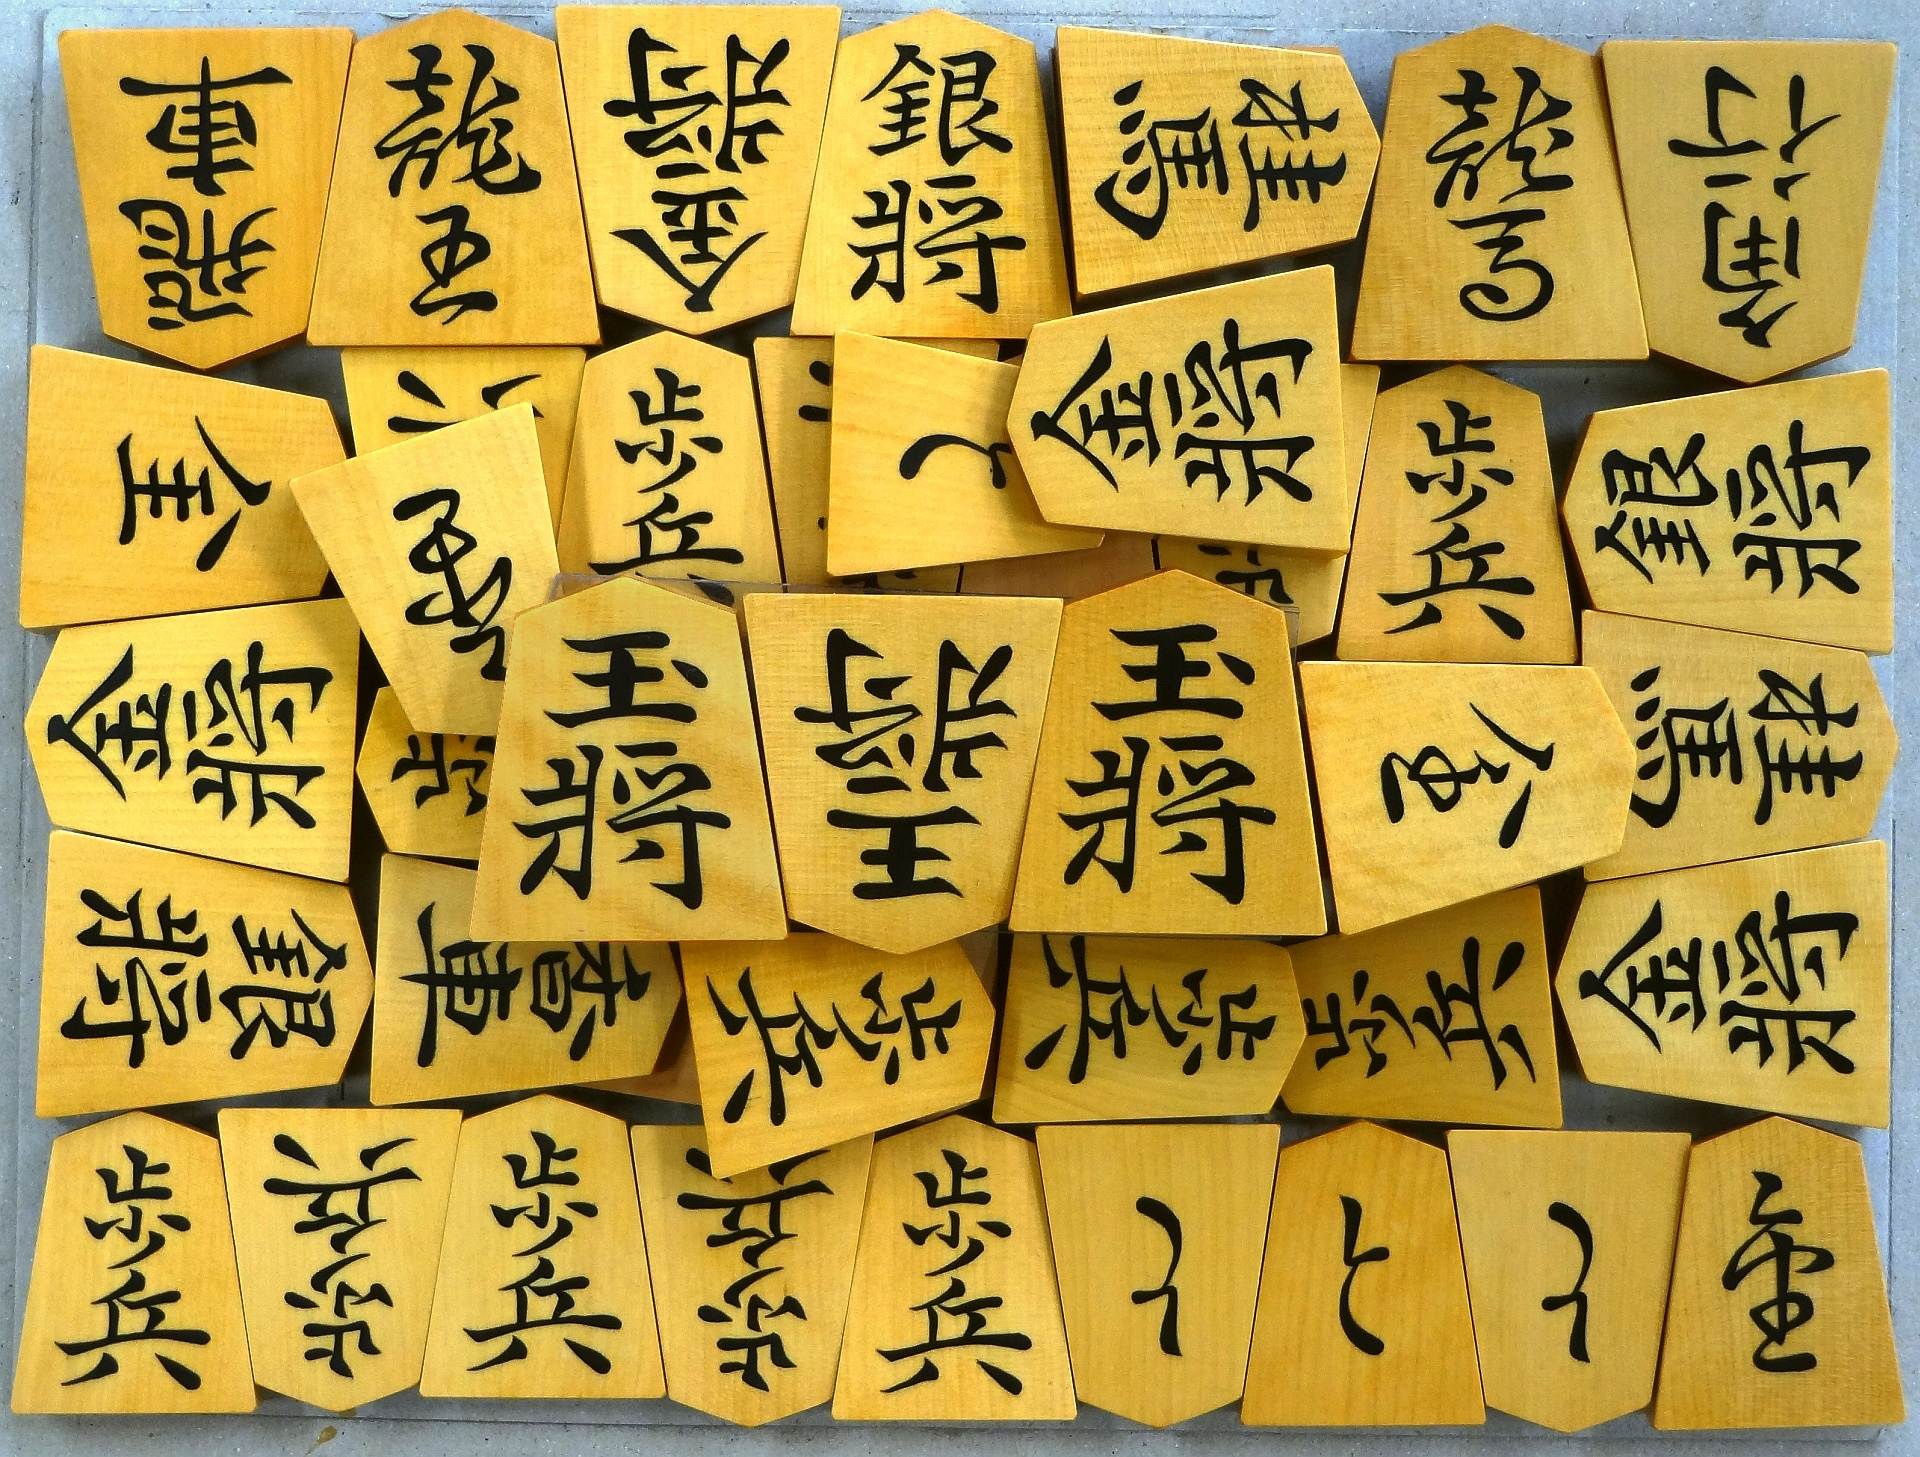 飛車
龍王
金将
銀将
桂馬
龍馬
角行
金
歩兵
と
金将
歩兵
銀将
金将
玉将
王将
玉将
金
桂馬
銀将
香車
歩兵
歩兵
歩兵
金将
歩兵
歩兵
歩兵
歩兵
歩兵
と
と
と
金